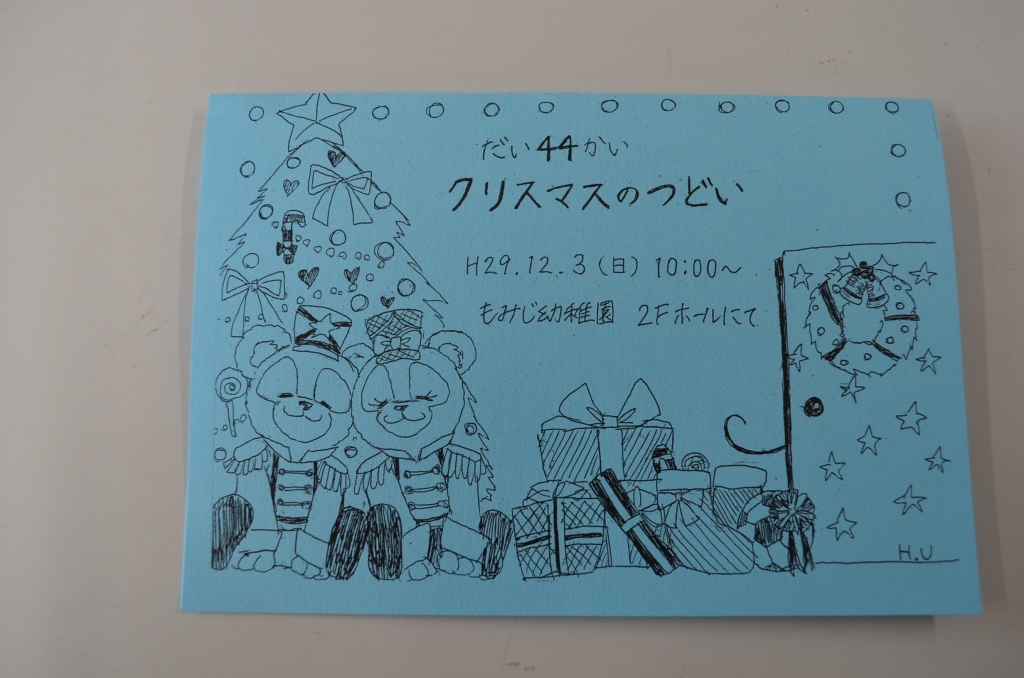 だい44かい
クリスマスのつどい
H29.12.3(日) 10:00〜
もみじ幼稚園 2Fホールにて
H.U